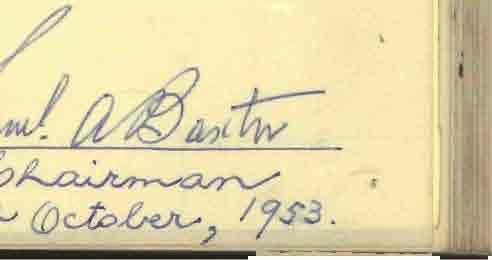 A Baxter
Chairman
October, 1953.